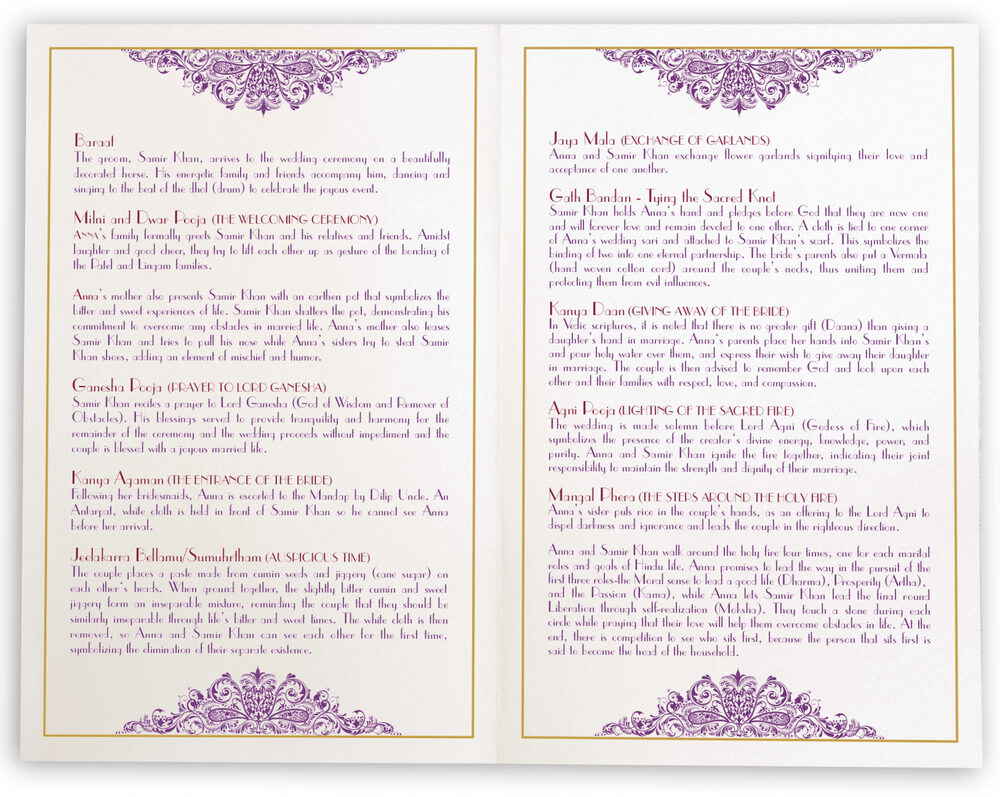 Baraat
The groom, Samir Khan, arrives to the wedding ceremony on a beautifully
decorated horse. His energetic family and friends accompany him, dancing and
singing to the beat of the dhol (drum) to celebrate the joyous event.
Milni and Dwar Pooja (THE WELCOMING CEREMONY)
ANNA's family formally greets Samir Khan and his relatives and friends. Amidst
laughter and good cheer, they try to lift each other up as gesture of the bonding of
the Patel and Lingam families.
Anna's mother also presents Samir Khan with an earthen pot that symbolizes the
bitter and sweet experiences of life. Samir Khan shatters the pot, demonstrating his
commitment to overcome any obstacles in married life. Anna's mother also teases
Samir Khan and tries to pull his nose while Anna's sisters try to steal Samir
Khan shoes, adding an element of mischief and humor.
Ganesha Pooja (PRAYER TO LORD GANESHA)
Samir Khan recites a prayer to Lord Ganesha (God of Wisdom and Remover of
Obstacles). His blessings served to provide tranquility and harmony for the
remainder of the ceremony and the wedding proceeds without impediment and the
couple is blessed with a joyous married life.
Kanya Agaman (THE ENTRANCE OF THE BRIDE)
Following her bridesmaids, Anna is escorted to the Mandap by Dilip Uncle. An
Antarpat, white cloth is held in front of Samir Khan so he cannot see Anna
before her arrival.
Jeelakarra Bellamu/Sumuhrtham (AUSPICIOUS TIME)
The couple places a paste made from cumin seeds and jiggery (cane sugar) on
each other's heads. When ground together, the slightly bitter cumin and sweet
jiggery form an inseparable mixture, reminding the couple that they should be
similarly inseparable through life's bitter and sweet times. The white cloth is then
removed, so Anna and Samir Khan can see each other for the first time,
symbolizing the elimination of their separate existence.
Jaya Mala (EXCHANGE OF GARLANDS)
Anna and Samir Khan exchange flower garlands signifying their love and
acceptance of one another.
Gath Bandan - Tying the Sacred Knot
Samir Khan holds Anna's hand and pledges before God that they are now one
and will forever love and remain devoted to one other. A cloth is tied to one corner
of Anna's wedding sari and attached to Samir Khan's scarf. This symbolizes the
binding of two into one eternal partnership. The bride's parents also put a Vermala
(hand woven cotton cord) around the couple's necks, thus uniting them and
protecting them from evil influences.
Kanya Daan (GIVING AWAY OF THE BRIDE)
In Vedic scriptures, it is noted that there is no greater gift (Daana) than giving a
daughter's hand in marriage. Anna's parents place her hands into Samir Khan's
and pour holy water over them, and express their wish to give away their daughter
in marriage. The couple is then advised to remember God and look upon each
other and their families with respect, love, and compassion.
Agni Pooja (LIGHTING OF THE SACRED FIRE)
The wedding is made solemn before Lord Agni (Godess of Fire), which
symbolizes the presence of the creator's divine energy, knowledge, power, and
purity. Anna and Samir Khan ignite the fire together, indicating their joint
responsibility to maintain the strength and dignity of their marriage.
Mangal Phera (THE STEPS AROUND THE HOLY FIRE)
Anna's sister puts rice in the couple's hands, as an offering to the Lord Agni to
dispel darkness and ignorance and leads the couple in the righteous direction.
Anna and Samir Khan walk around the holy fire four times, one for each marital
roles and goals of Hindu life. Anna promises to lead the way in the pursuit of the
first three roles-the Moral sense to lead a good life (Dharma), Prosperity (Artha),
and the Passion (Kama), while Anna lets Samir Khan lead the final round
Liberation through self-realization (Moksha). They touch a stone during each
circle while praying that their love will help them overcome obstacles in life. At the
end, there is competition to see who sits first, because the person that sits first is
said to become the head of the household.